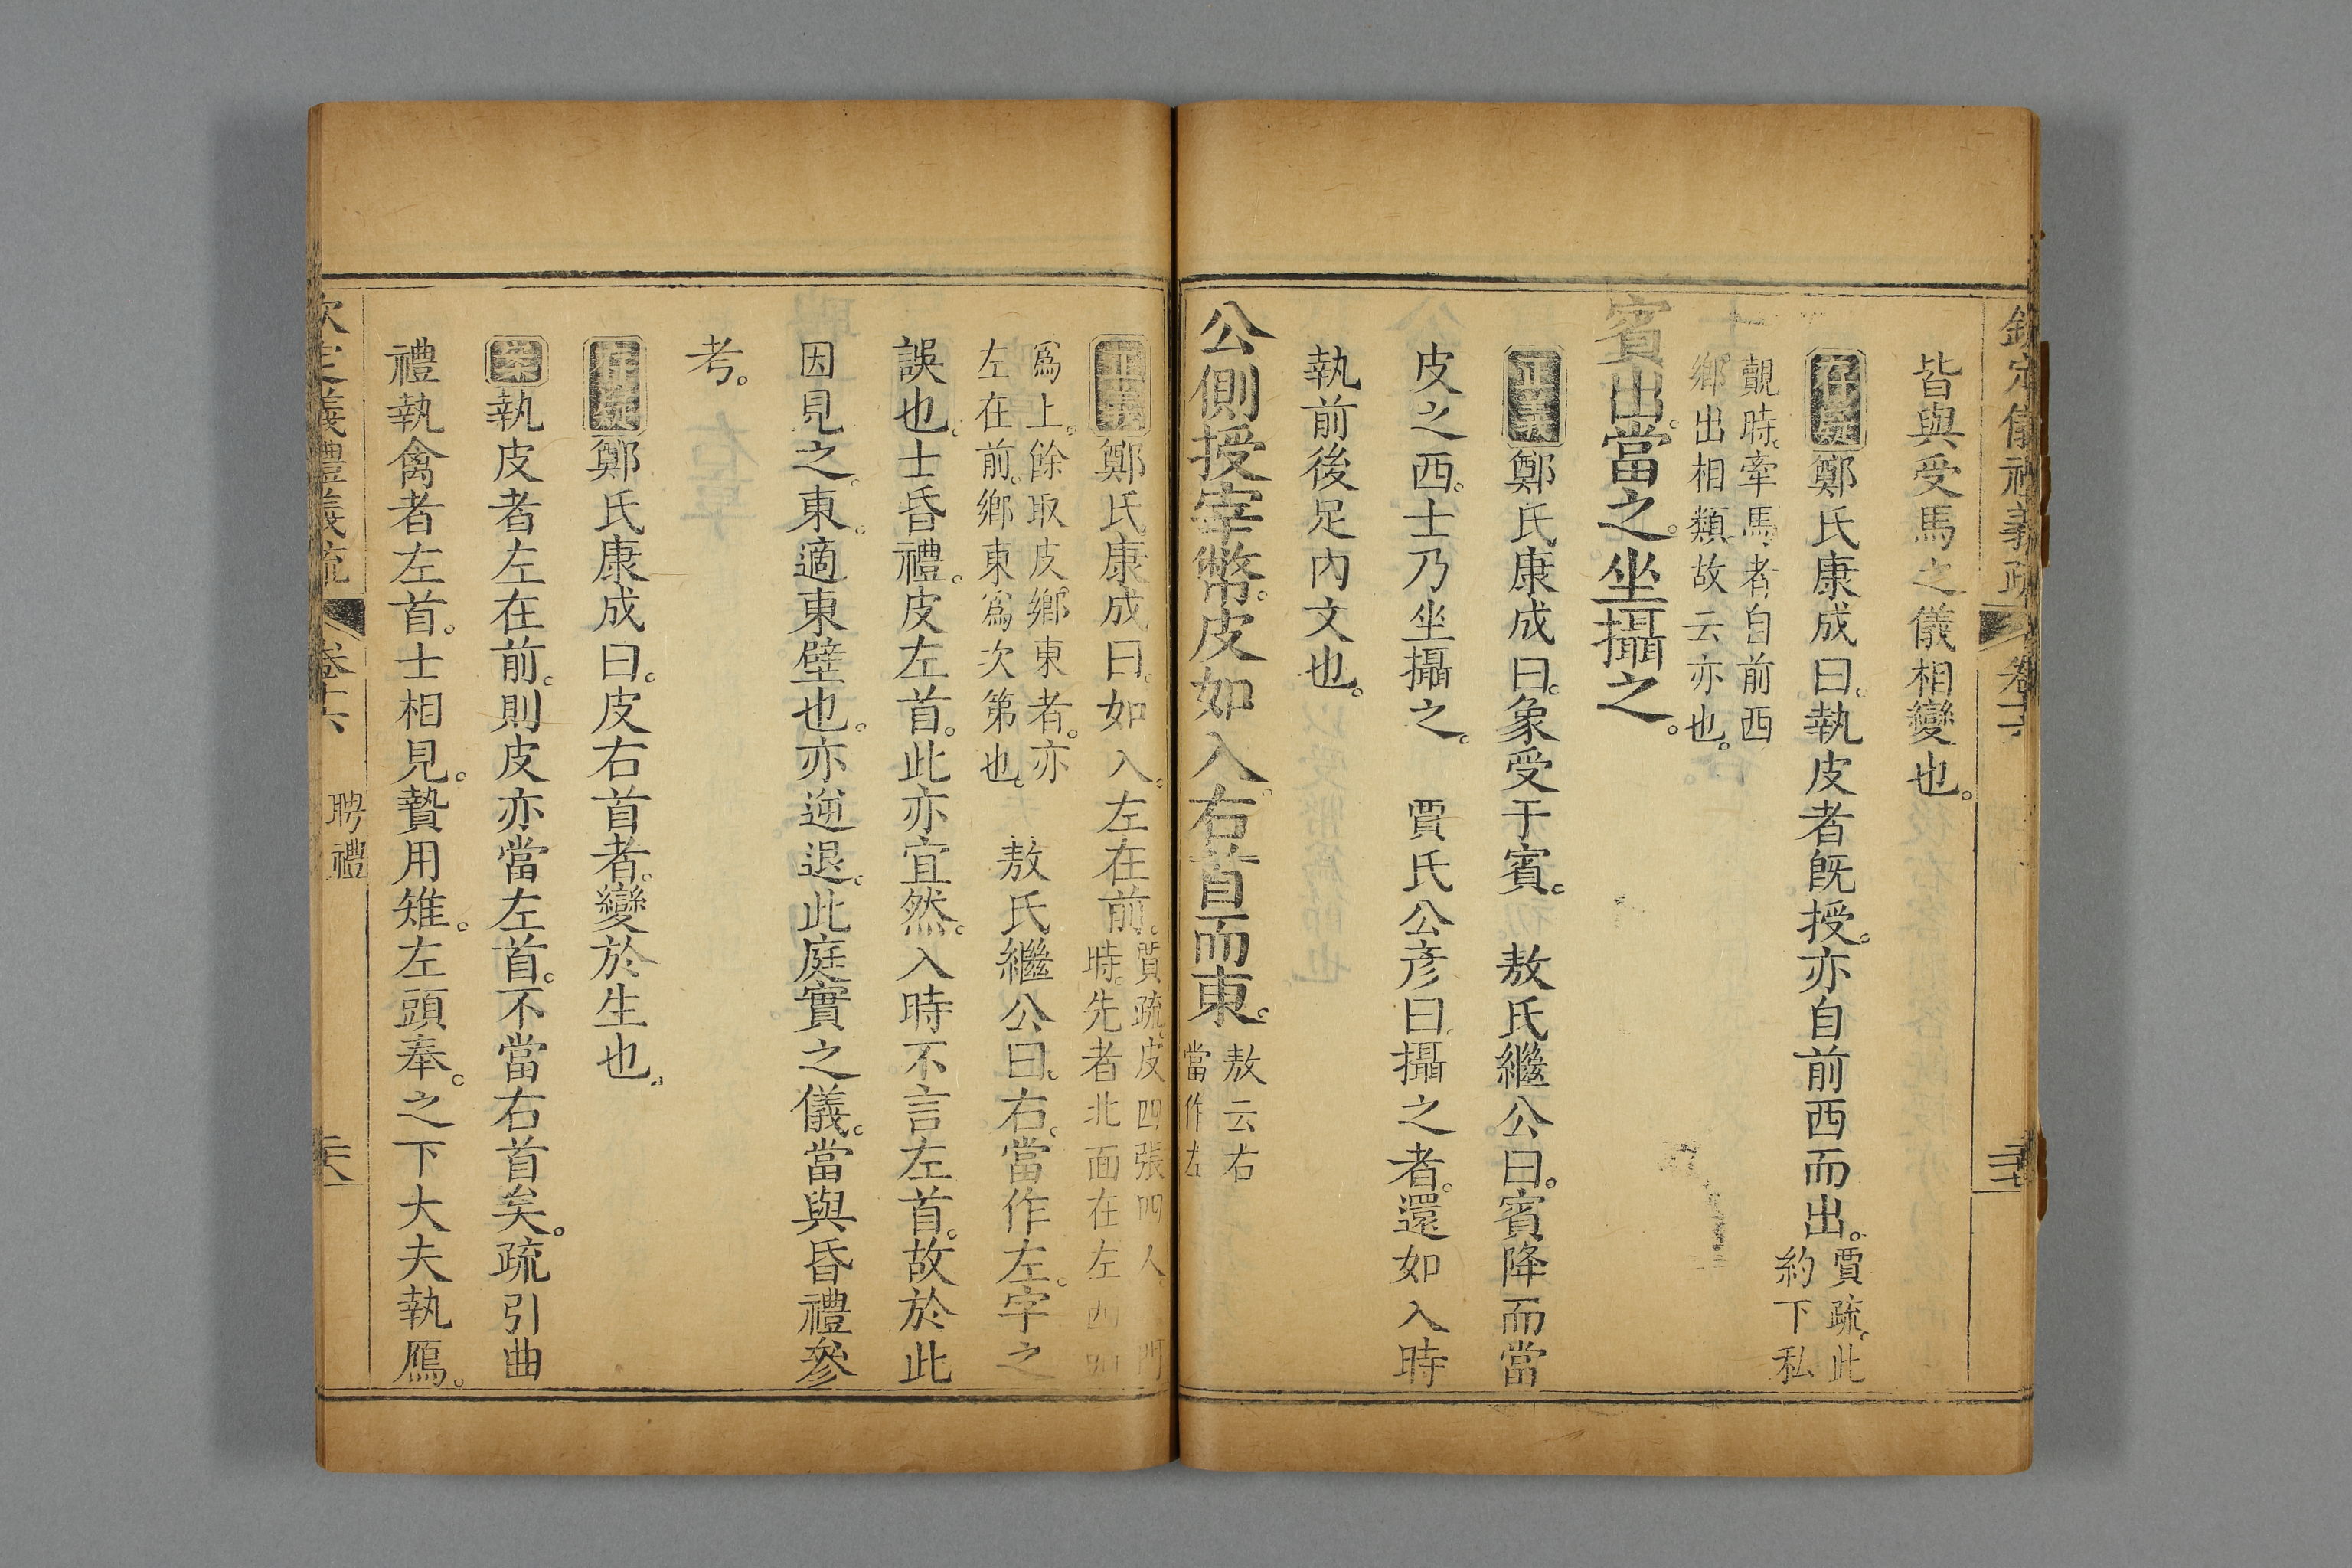 欽定儀禮義疏 卷十六 三十七
皆與受馬之儀相變也。
存疑 鄭氏康成曰。執皮者旣授。亦自前西而出。賈疏。此約下私
覿時。牽馬者自前西鄉出相類。故云亦也。
賓出。當之。坐攝之。
正義 鄭氏康成曰。象受于賓。 敖氏繼公曰。賓降而當
皮之西。士乃坐攝之。 賈氏公彥曰。攝之者。還如入時
執前後足內文也。
公側授宰幣。皮如入。右首而東。敖云右當作左
正義 鄭氏康成曰。如入。左在前。賈疏。皮四張四人。入門時。先者北面在左西
爲上。餘取皮鄉東者。亦左在前。鄉東爲次第也。 敖氏繼公曰。右。當作左。字之
誤也。士昏禮。皮左首。此亦宜然。入時不言左首。故於此
因見之。東。適東壁也。亦逆退。此庭實之儀。當與昏禮參
考。
存疑 鄭氏康成曰。皮右首者。變於生也。
案 執皮者左在前。則皮亦當左首。不當右首矣。疏引曲
禮執禽者左首。士相見。贄用雉。左頭奉之。下大夫執鴈。
欽定義禮義疏 卷十六 聘禮 三十八